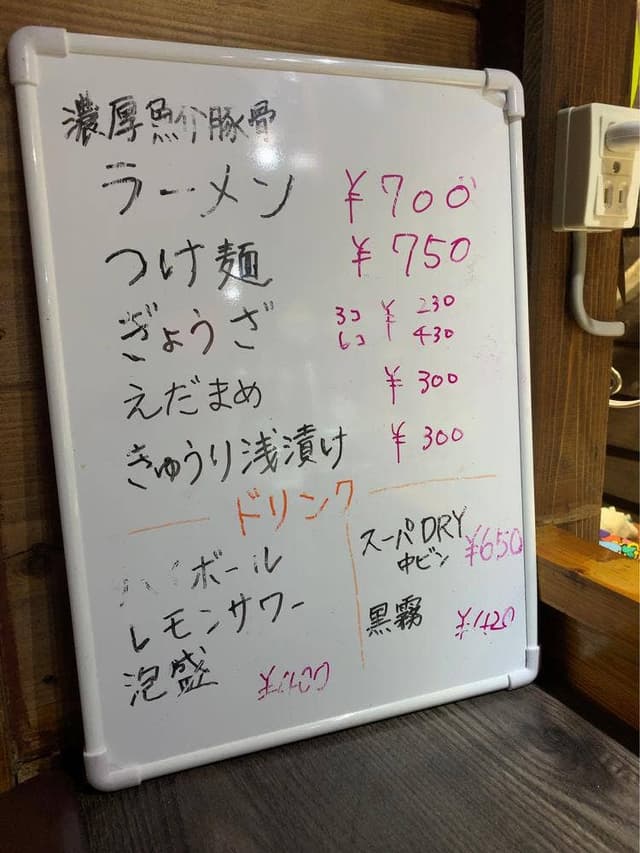 濃厚魚介豚骨
ラーメン ¥700
つけ麺 ¥750
ぎょうざ 3コ ¥ 230
6コ 430
えだまめ ¥300
きゅうり浅漬け ¥300
ドリンク
ハイボール
レモンサワー
泡盛
スーパDRY
中ビン ¥650
黒霧